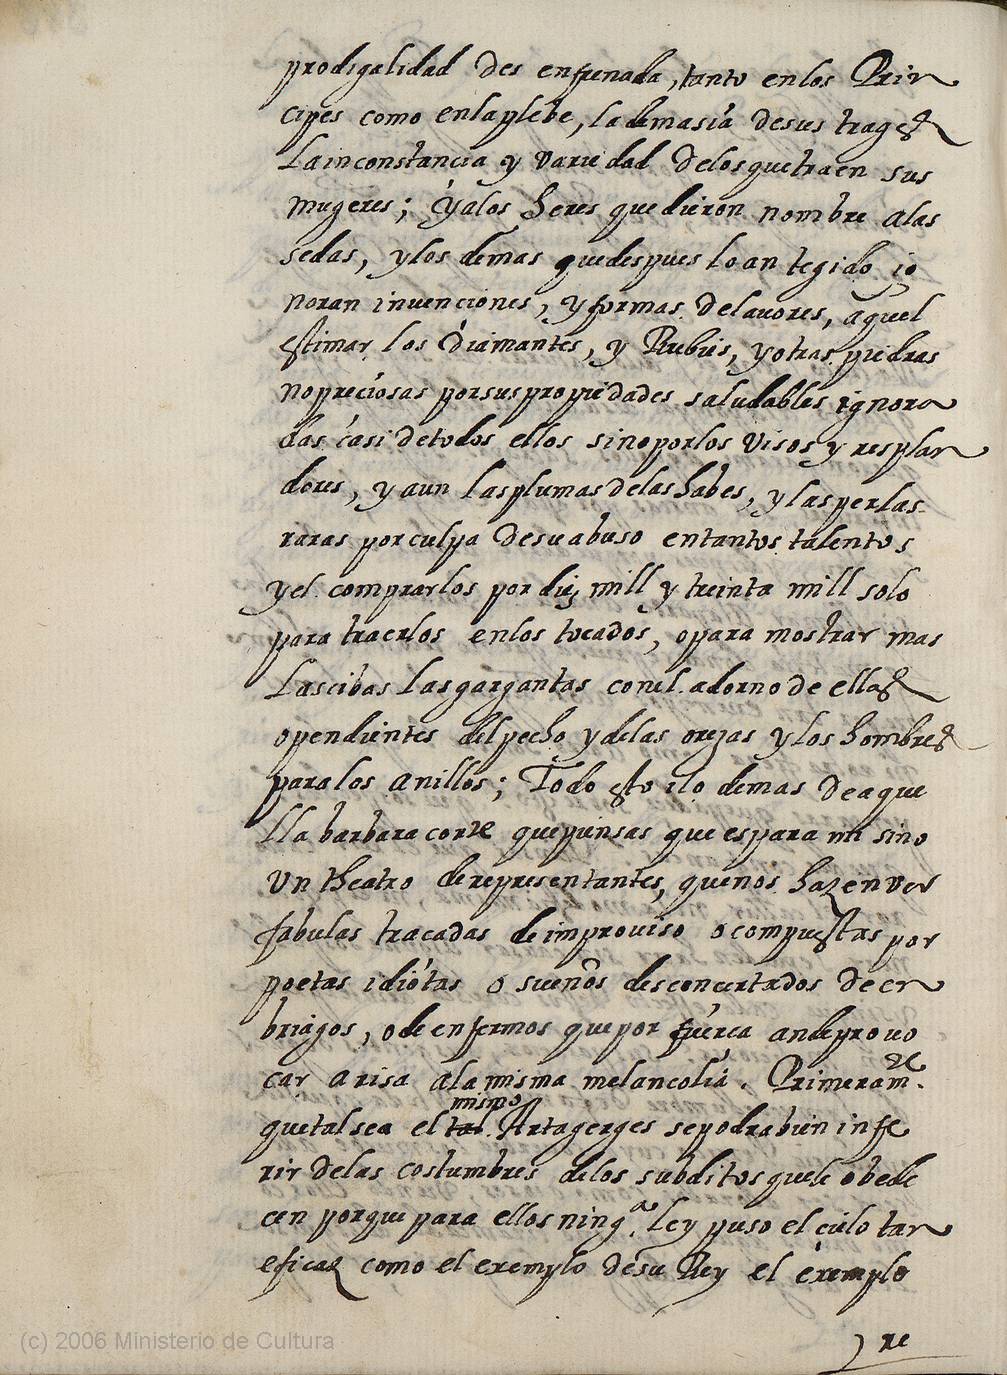 prodigalidad des enfrenada, tanto en los Prin
cipes como en la plebe, la demasia de sus trages
La inconstancia y variedad de los que traen sus
mugeres; y a los seres que dieron nombre a las
sedas, y los demas que despues lo an tegido ig
noran invenciones, y formas de lauores, aquel
estimar los diamantes, y Rubies, y otras piedras
no preciosas por sus propiedades saludables ignora
das casi de todos ellos sino por los visos y resplan
dores, y aun las plumas de las habes, y las perlas
raras por culpa de su abuso en tantos talentos
y el comprarlos por diez mill y treinta mill solo
para traerlos en los tocados, o para mostrar mas
Lascibas las gargantas con el adorno de ellas
o pendientes del pecho y de las orejas y los hombres
para los anillos; Todo esto i lo demas de aque
lla barbara corte que piensas que es para mi sino
Vn theatro de representantes, que nos hazen ver
fabulas tracadas de improuiso o compuestas por
poetas idiotas o sueños desconcertados de en
briagos, o de enfermos que por fuerca an de prouo
car a risa a la misma melancolia. Primeram.te
que tal sea el tal mismo Artagerges se podra bien infe
rir de las costumbres de los subditos que le obede
cen porque para ellos ning.a ley puso el cielo tan
eficaz como el exemplo de su Rey el exemplo
re
(c) 2006 Ministerio de Cultura